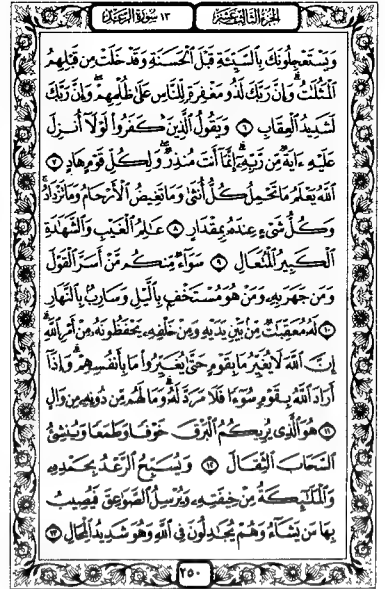 الجزء الثالث عشر ١٣ سورة الرعد
وَيَسْتَعْجِلُونَكَ بِالسَّيِّئَةِ قَبْلَ الْحَسَنَةِ وَقَدْ خَلَتْ مِن قَبْلِهِمُ
الْمَثُلَاتُ ۗ وَإِنَّ رَبَّكَ لَذُو مَغْفِرَةٍ لِّلنَّاسِ عَلَىٰ ظُلْمِهِمْ ۖ وَإِنَّ رَبَّكَ
لَشَدِيدُ الْعِقَابِ ٦ وَيَقُولُ الَّذِينَ كَفَرُوا لَوْلَا أُنزِلَ
عَلَيْهِ ءَايَةٌ مِّن رَّبِّهِ ۗ إِنَّمَا أَنتَ مُنذِرٌ ۖ وَلِكُلِّ قَوْمٍ هَادٍ ٧
اللَّهُ يَعْلَمُ مَا تَحْمِلُ كُلُّ أُنثَىٰ وَمَا تَغِيضُ الْأَرْحَامُ وَمَا تَزْدَادُ ۖ
وَكُلُّ شَيْءٍ عِندَهُ بِمِقْدَارٍ ٨ عَالِمُ الْغَيْبِ وَالشَّهَادَةِ
الْكَبِيرُ الْمُتَعَالِ ٩ سَوَاءٌ مِّنكُم مَّنْ أَسَرَّ الْقَوْلَ
وَمَن جَهَرَ بِهِ وَمَنْ هُوَ مُسْتَخْفٍ بِالَّيْلِ وَسَارِبٌ بِالنَّهَارِ
١٠ لَهُ مُعَقِّبَاتٌ مِّن بَيْنِ يَدَيْهِ وَمِنْ خَلْفِهِ يَحْفَظُونَهُ مِنْ أَمْرِ اللَّهِ ۗ
إِنَّ اللَّهَ لَا يُغَيِّرُ مَا بِقَوْمٍ حَتَّىٰ يُغَيِّرُوا مَا بِأَنفُسِهِمْ ۗ وَإِذَا
أَرَادَ اللَّهُ بِقَوْمٍ سُوءًا فَلَا مَرَدَّ لَهُ ۚ وَمَا لَهُم مِّن دُونِهِ مِن وَالٍ
١١ هُوَ الَّذِي يُرِيكُمُ الْبَرْقَ خَوْفًا وَطَمَعًا وَيُنشِئُ
السَّحَابَ الثِّقَالَ ١٢ وَيُسَبِّحُ الرَّعْدُ بِحَمْدِهِ
وَالْمَلَائِكَةُ مِنْ خِيفَتِهِ وَيُرْسِلُ الصَّوَاعِقَ فَيُصِيبُ
بِهَا مَن يَشَاءُ وَهُمْ يُجَادِلُونَ فِي اللَّهِ وَهُوَ شَدِيدُ الْمِحَالِ ١٣
٢٥٠